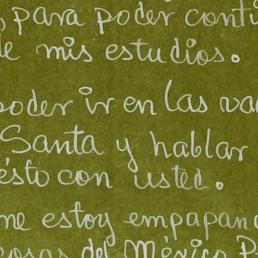 , para poder conti
de mis estudios.
poder ir en las va
Santa y hablar
ésto con usted.
me estoy empapan
cosas del México P